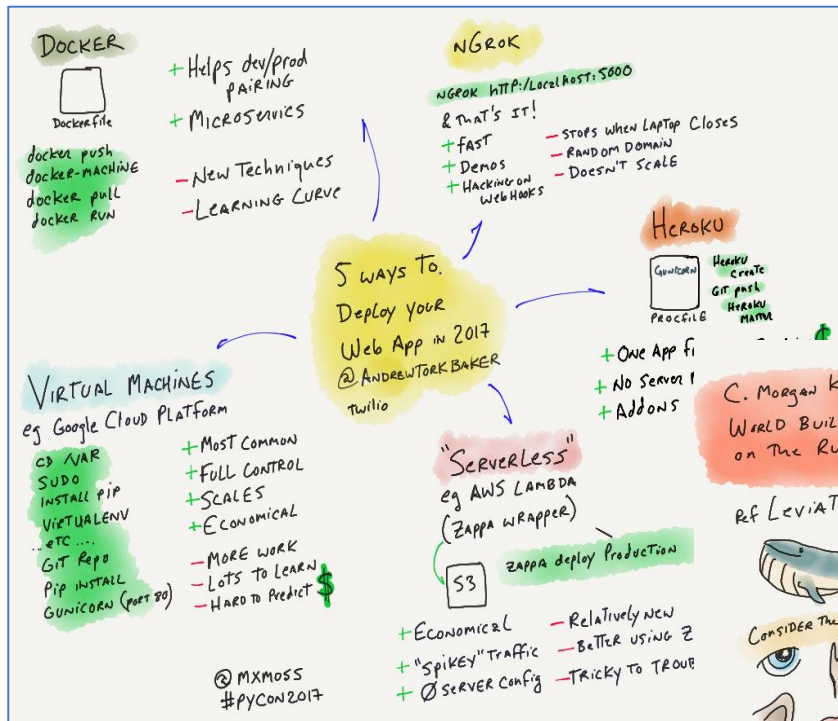 DOCKER
Dockerfile
docker push
docker-MACHINE
docker pull
docker RUN
+ Helps dev/prod
PAIRING
+ Microservics
- New Techniques
- Learning Curve
NGROK
NGROK http://localhost:5000
& THAT'S IT!
+ FAST
+ Demos
+ HACKING ON
WebHOOKS
- STOPS WHEN LAPTOP Closes
- RANDOM DOMAIN
- DOESN'T SCALE
HEROKU
GUNICORN
PROCFILE
HEROKU
CREATE
GIT push
HEROKU
+ One App
+ No Server
+ Addons
$
5 WAYS TO.
Deploy your
Web App in 2017
@ANDREWTORKBAKER
Twilio
VIRTUAL MACHINES
eg Google Cloud Platform
CD /VAR
SUDO
INSTALL PIP
VIRTUALENV
...ETC ....
GIT Repo
Pip INSTALL
GUNICORN (PORT 80)
+ Most Common
+ FULL CONTROL
+ SCALES
+ ECONOMICAL
- MORE WORK
- LOTS TO LEARN
- HARD TO Predict $
"SERVERLESS"
eg AWS LAMBDA
(ZAPPA WRAPPER)
ZAPPA deploy Production
S3
+ ECONOMICAL
+ "SPIKEY" TRAFFIC
+ Ø SERVER Config
- Relatively New
- BETTER USING Z
- TRICKY TO TROUB
@MXMOSS
#PYCON2017
C. MORGAN K
WORLD BUIL
on THE RU
Ref LEVIAT
CONSIDER THE